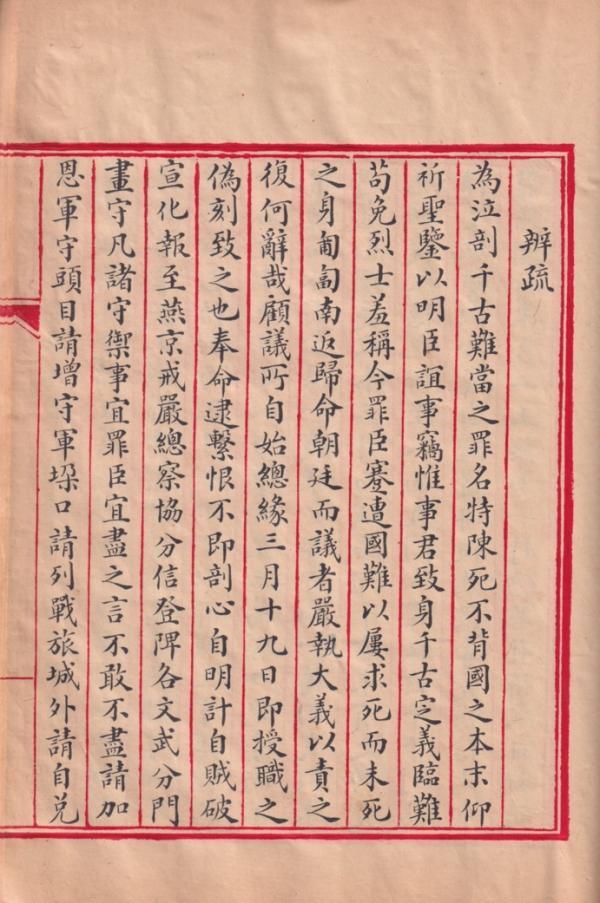 辨疏
為泣剖千古難當之罪名特陳死不背國之本末仰
祈聖鑒以明臣誼事竊惟事君致身千古定義臨難
苟免烈士羞稱今罪臣蹇遭國難以屢求死而未死
之身匍匐南返歸命朝廷而議者嚴執大義以責之
復何辭哉顧議所自始總緣三月十九日即授職之
偽刻致之也奉命逮繫恨不即剖心自明計自賊破
宣化報至燕京戒嚴總察協分信登陴各文武分門
畫守凡諸守禦事宜罪臣宜盡之言不敢不盡請加
恩軍守頭目請增守軍垜口請列戰旅城外請自兌